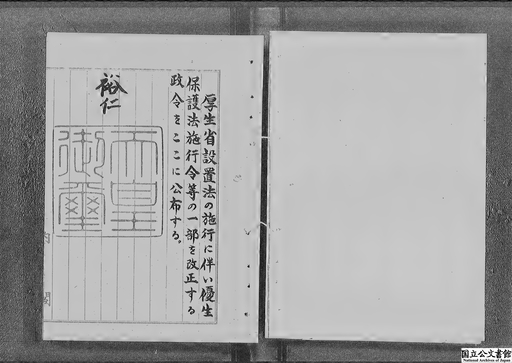 厚生省設置法の施行に伴い優生
保護法施行令等の一部を改正する
政令をここに公布する。
裕仁
天皇
御璽
内閣
国立公文書館
National Archives of Japan